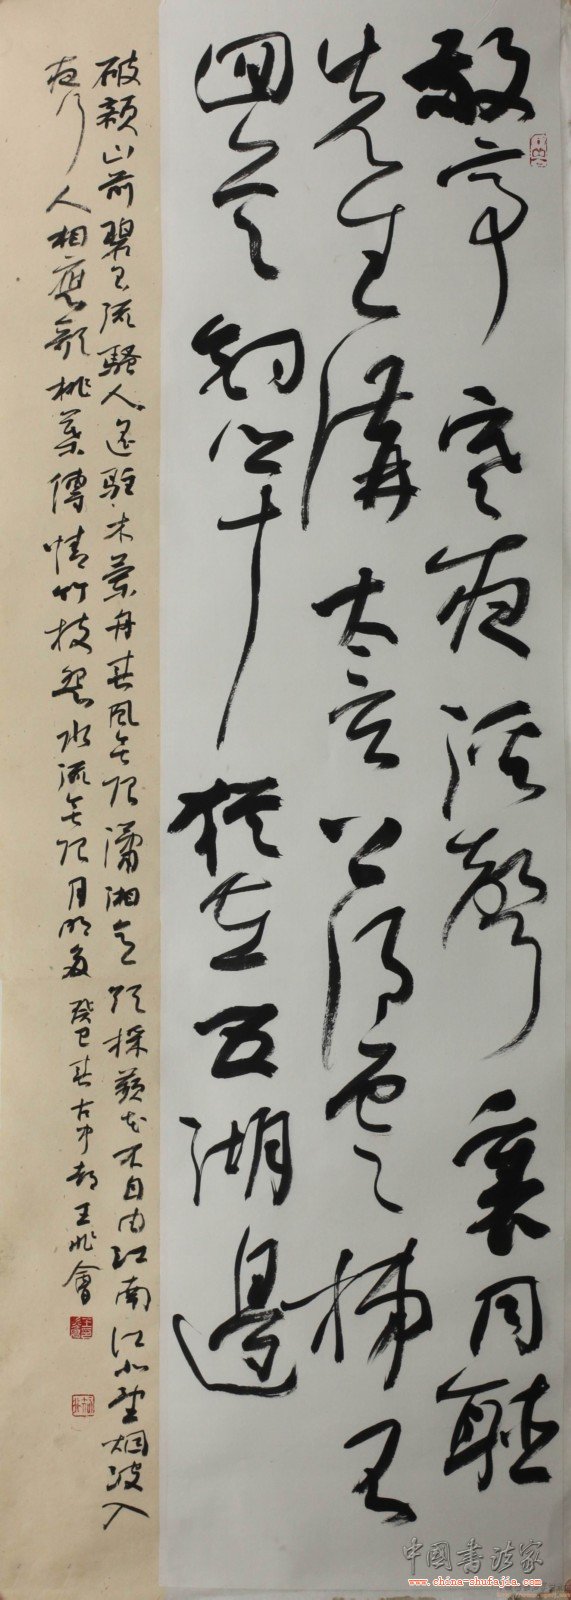 敬亭寒夜溪聲裏同聽
先生講太玄上得雲梯不
回首釣竿猶在五湖邊
破額山前碧玉流騷人遙駐木蘭舟春風無限瀟湘意欲採蘋花不自由江南江北望烟波入
夜行人相應歌桃葉傳情竹枝怨水流無限月明多癸巳春古中都王兆會
中國書法家
www.china-shufajia.com